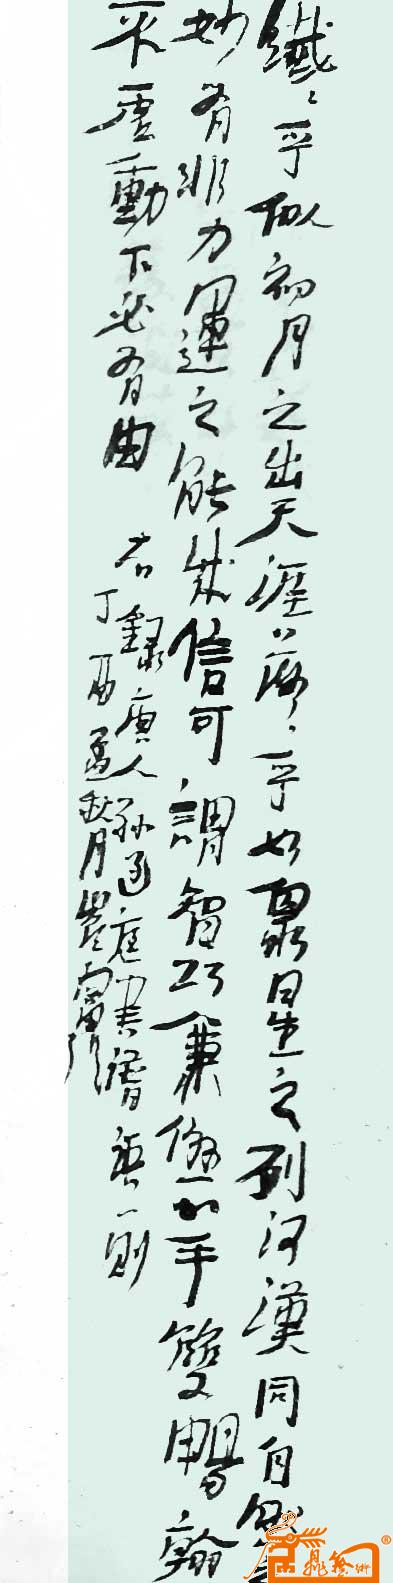 纖纖乎似初月之出天涯落落乎如眾星之列河漢同自然之
妙有非力運之能成信可謂智巧兼優心手雙暢翰
不虛動下必有由
右錄唐人孫過庭書譜句一則
丁酉孟秋月
鼎藝術